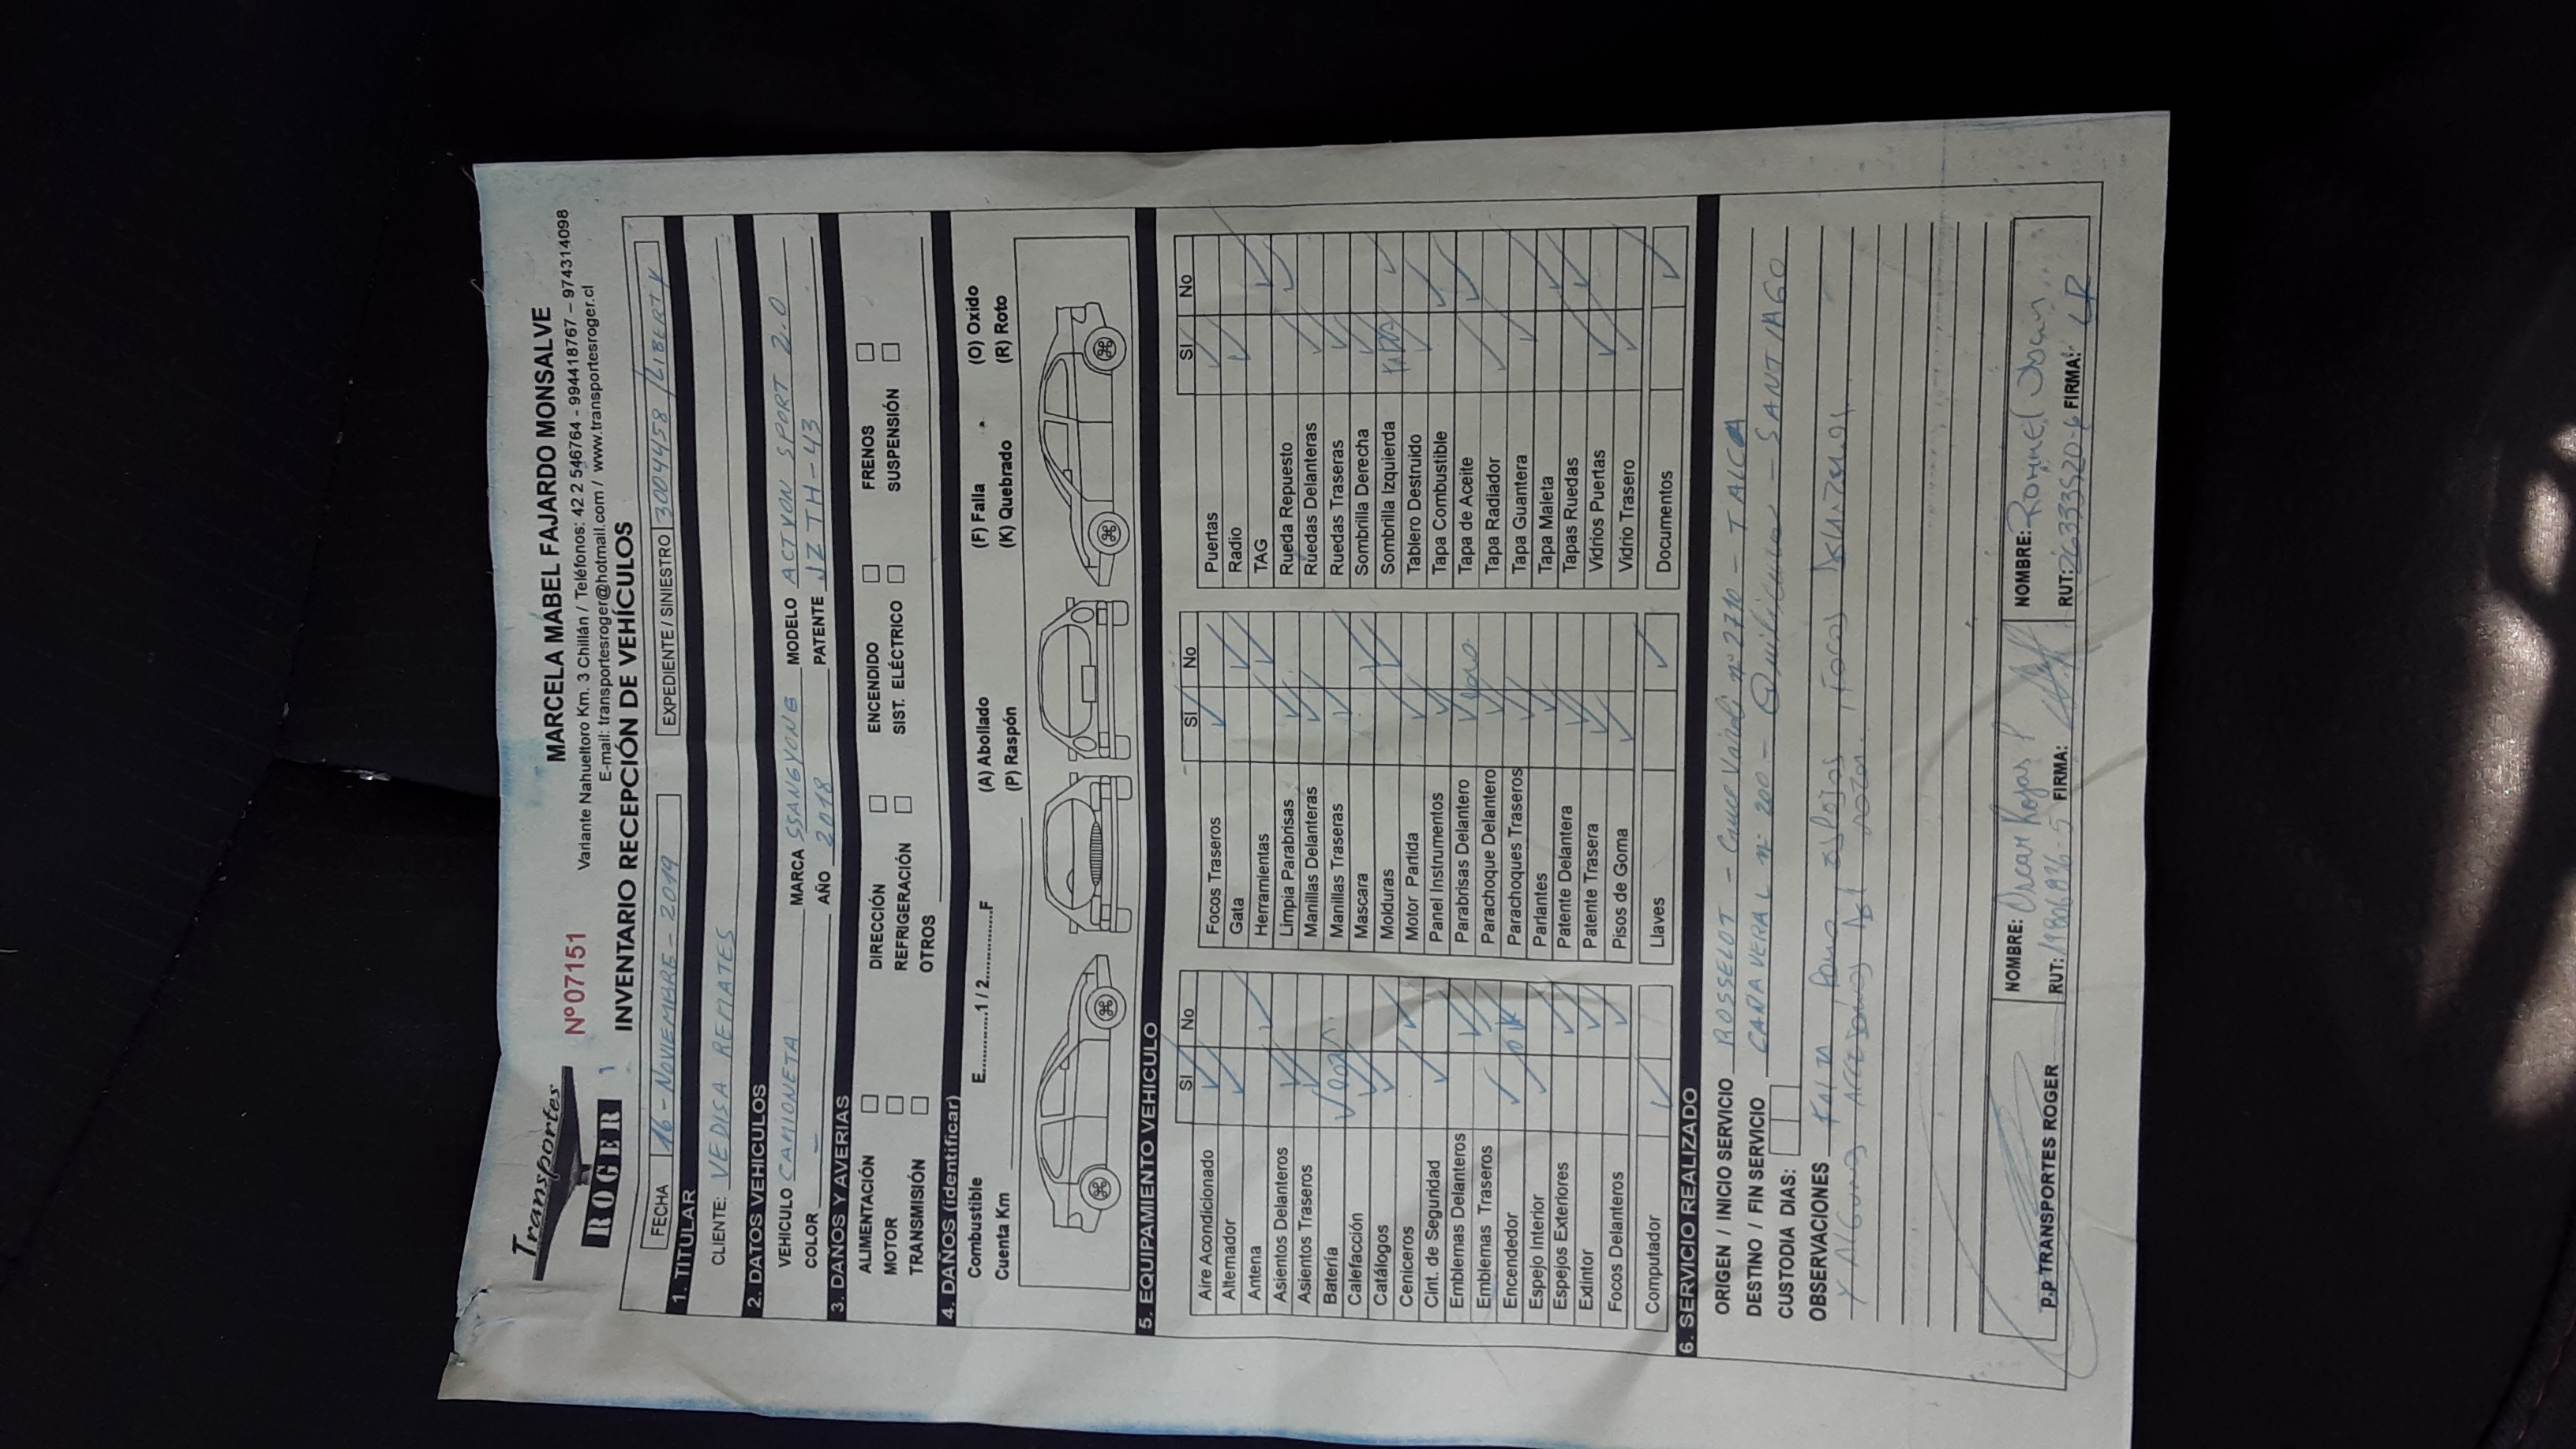 Transportes
ROGER
MARCELA MABEL FAJARDO MONSALVE
Variante Nahueltoro Km. 3 Chillán / Teléfonos: 42 2 546764 - 994418767 – 974314098
E-mail: transportesroger@hotmail.com / www.transportesroger.cl
Nº 07151
INVENTARIO RECEPCIÓN DE VEHÍCULOS
FECHA 16 - NOVIEMBRE - 2019 EXPEDIENTE / SINIESTRO 3004458 / LIBERTY
1. TITULAR
CLIENTE: VEDISA REMATES
2. DATOS VEHICULOS
VEHICULO CAMIONETA MARCA SSANGYONG MODELO ACTYON SPORT 2.0
COLOR — AÑO 2018 PATENTE JZTH-43
3. DAÑOS Y AVERIAS
ALIMENTACIÓN DIRECCIÓN ENCENDIDO FRENOS
MOTOR REFRIGERACIÓN SIST. ELÉCTRICO SUSPENSIÓN
TRANSMISIÓN OTROS
4. DAÑOS (identificar)
Combustible E..............1 / 2..............F (A) Abollado (F) Falla (O) Oxido
Cuenta Km (P) Raspón (K) Quebrado (R) Roto
5. EQUIPAMIENTO VEHICULO
SI No SI No SI No
Aire Acondicionado Focos Traseros Puertas
Alternador Gata Radio
Antena Herramientas TAG
Asientos Delanteros Limpia Parabrisas Rueda Repuesto
Asientos Traseros Manillas Delanteras Ruedas Delanteras
Batería Manillas Traseras Ruedas Traseras
Calefacción Mascara Sombrilla Derecha
Catálogos Molduras Sombrilla Izquierda
Ceniceros Motor Partida Tablero Destruido
Cint. de Seguridad Panel Instrumentos Tapa Combustible
Emblemas Delanteros Parabrisas Delantero Tapa de Aceite
Emblemas Traseros Parachoque Delantero Tapa Radiador
Encendedor Parachoques Traseros Tapa Guantera
Espejo Interior Parlantes Tapa Maleta
Espejos Exteriores Patente Delantera Tapas Ruedas
Extintor Patente Trasera Vidrios Puertas
Focos Delanteros Pisos de Goma Vidrio Trasero
Computador Llaves Documentos
6. SERVICIO REALIZADO
ORIGEN / INICIO SERVICIO ROSSELOT - Cruce Varoli nº 2710 - TALCA
DESTINO / FIN SERVICIO CAÑAVERAL nº 200 - Quilicura - SANTIAGO
CUSTODIA DIAS:
OBSERVACIONES Falta espejos focos Delanteros
Y Algunos Accesorios Del
p.p TRANSPORTES ROGER
NOMBRE: Oscar Rojas P
RUT: FIRMA:
NOMBRE: Rommel
RUT: FIRMA: